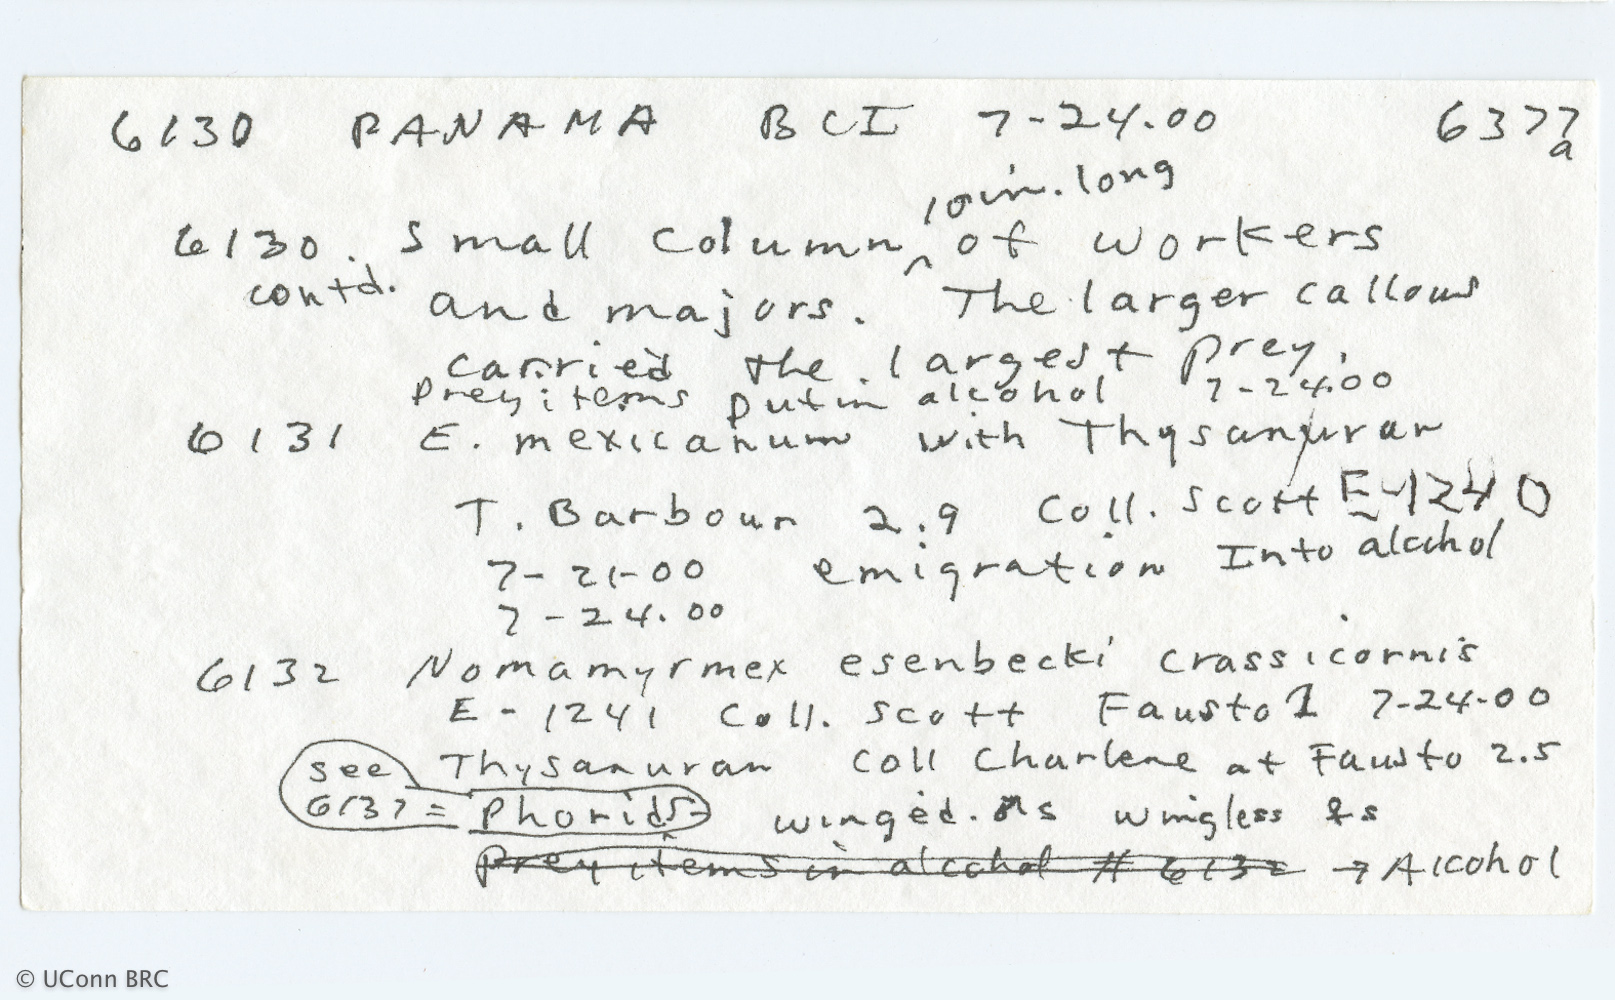 6130 PANAMA BCI 7-24.00 6377a
10in. long
6130. Small column ^ of workers
contd. and majors. The larger callows
carried the largest prey.
prey items put in alcohol 7-24.00
6131 E. mexicanum with Thysanuran
T. Barbour 2.9 Coll. Scott E-1240
7-21-00 emigration Into alcohol
7-24.00
6132 Nomamyrmex esenbecki crassicornis
E-1241 Coll. Scott Fausto 1 7-24-00
see Thysanuran Coll Charlene at Fausto 2.5
6137 = Phorids winged. ms wingless fs
prey items in alcohol # 6132 → Alcohol
© UConn BRC